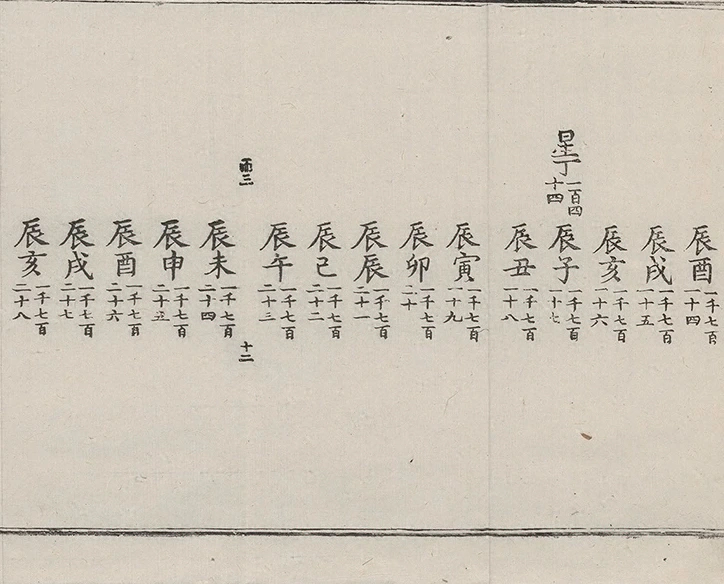 辰酉一千七百一十四
辰戌一千七百一十五
辰亥一千七百一十六
星丁一百四十四
辰子一千七百一十七
辰丑一千七百一十八
辰寅一千七百一十九
辰卯一千七百二十
辰辰一千七百二十一
辰巳一千七百二十二
辰午一千七百二十三
三
十二
辰未一千七百二十四
辰申一千七百二十五
辰酉一千七百二十六
辰戌一千七百二十七
辰亥一千七百二十八